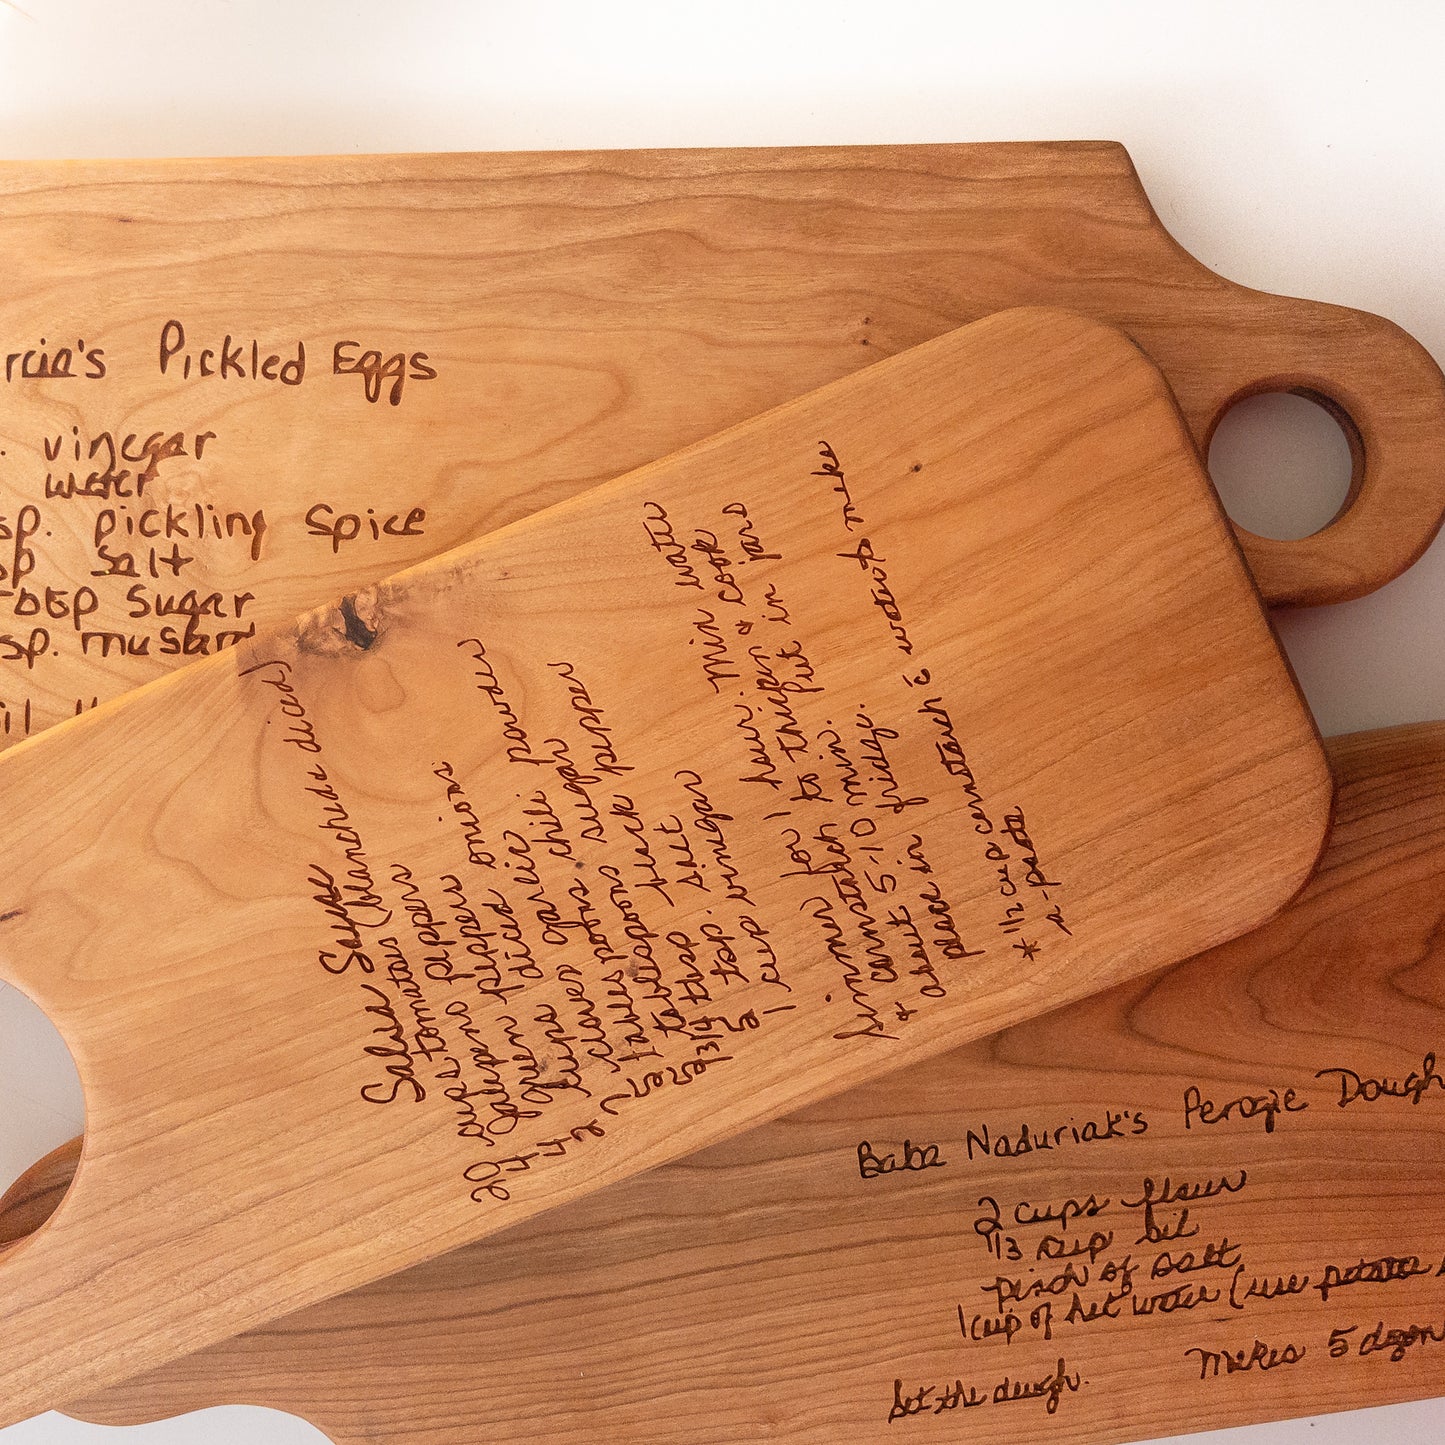 rcia's Pickled Eggs
vinegar
water
sp. pickling Spice
sp Salt
Sugar
sp. mustard
Salsa Sause
20 cups tomatoes (blanched & diced)
4 jalepno peppers
4 green peppers
4 cups diced onions
2 cloves garlic
2 tablespoons chili powder
5 tablespoons sugar
tbsp black pepper
tsp. salt
1 cup vinegar
Simmer for 1 hour. Mix water
& cornstarch to thicken & cook
about 5-10 min. Put in jars
place in fridge.
* 1/2 cup cornstarch c̄ water to make
a paste
Baba Naduriak's Perogie Dough
2 cups flour
1/3 cup oil
pinch of salt
1 cup of hot water (use potatoe
Makes 5 dozen
Set the dough.